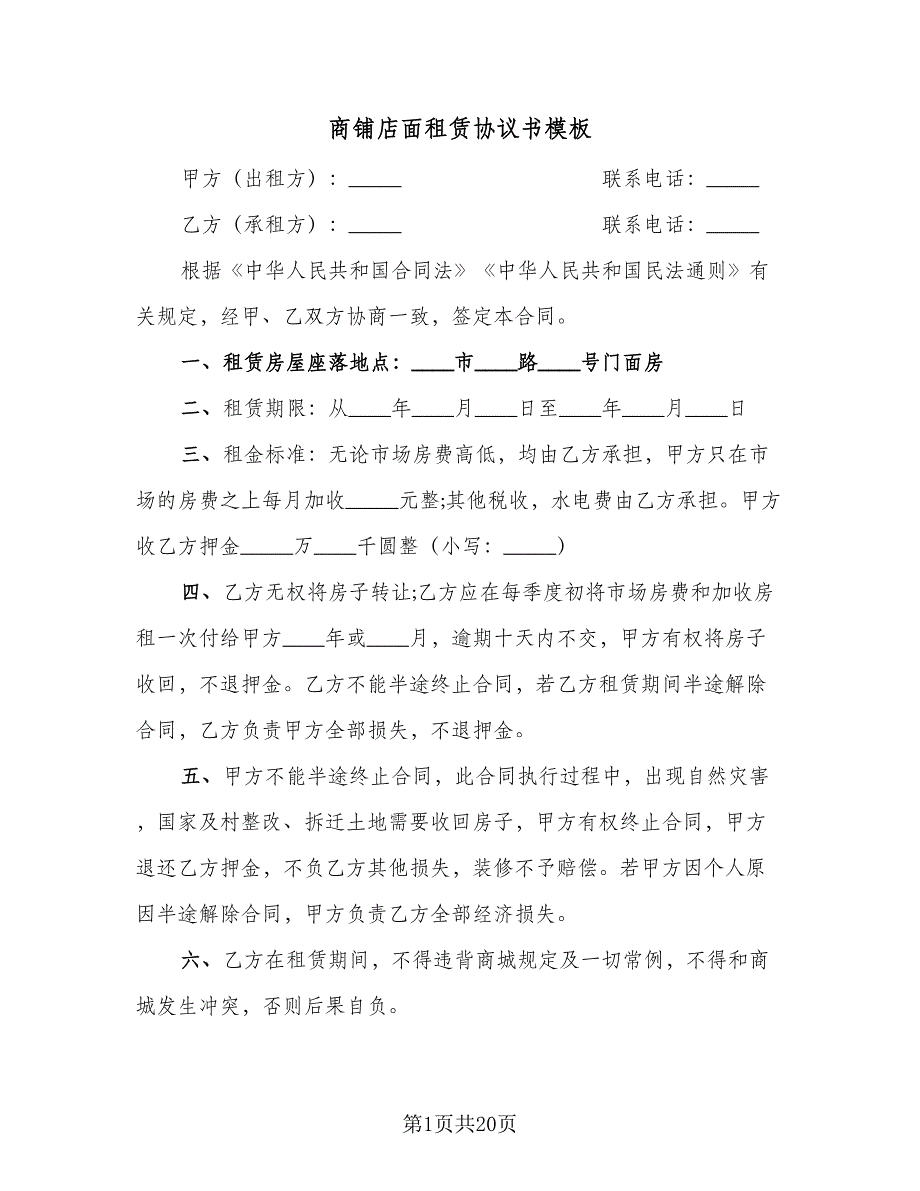 商铺店面租赁协议书模板
甲方（出租方）：_____ 联系电话：_____
乙方（承租方）：_____ 联系电话：_____
根据《中华人民共和国合同法》《中华人民共和国民法通则》有
关规定，经甲、乙双方协商一致，签定本合同。
一、租赁房屋座落地点：____市____路____号门面房
二、租赁期限：从____年____月____日至____年____月____日
三、租金标准：无论市场房费高低，均由乙方承担，甲方只在市
场的房费之上每月加收_____元整;其他税收，水电费由乙方承担。甲方
收乙方押金_____万____千圆整（小写：_____）
四、乙方无权将房子转让;乙方应在每季度初将市场房费和加收房
租一次付给甲方____年或____月，逾期十天内不交，甲方有权将房子
收回，不退押金。乙方不能半途终止合同，若乙方租赁期间半途解除
合同，乙方负责甲方全部损失，不退押金。
五、甲方不能半途终止合同，此合同执行过程中，出现自然灾害
，国家及村整改、拆迁土地需要收回房子，甲方有权终止合同，甲方
退还乙方押金，不负乙方其他损失，装修不予赔偿。若甲方因个人原
因半途解除合同，甲方负责乙方全部经济损失。
六、乙方在租赁期间，不得违背商城规定及一切常例，不得和商
城发生冲突，否则后果自负。
第1页共20页